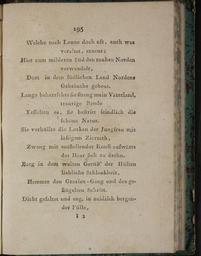 195
Welche noch Leone doch ist, auch was
veraltet, erneut;
Hier zum milderen Süd den rauhen Norden
verwandele,
Dem in dem südlichen Land Nordens
Geheimnis geheut.
Lange beherrschet sie streng mein Vaterland,
traurige Bande
Fesselten es, sie bestritt feindlich die
schöne Natur.
Sie verhüllte die Locken der Jungfrau mit
lästigem Zierrath,
Zwang mit entstellender Kunst aufwärts
das Haar sich zu drehn.
Barg in dem weiten Gerüst der Hüften
liebliche Schlankheit,
Hemmte den Grazien-Gang und den ge-
flügelten Schritt.
Dicht gefaltet und eng, in neidisch bergen-
der Fülle,
I 2